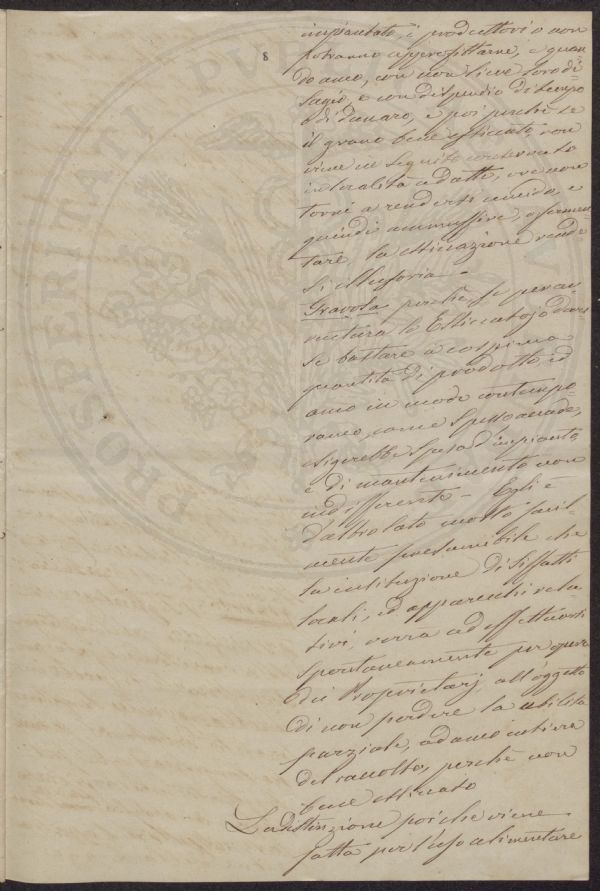 8
impiantato, i produttori o non
potranno approfittarne, e quan
do anco, con non lieve loro di-
sagio, e con dispendio di tempo
e di danaro, e poi perchè se
il grano bene essiccato, non
viene in seguito conservato
in località adatte, ove non
torni a rendersi umido, e
quindi ammuffire, o fermen
tare, la essiccazione rende
si illusoria -
Gravola perchè se per av
ventura lo Essiccatojo doves
se bastare a cospicua
quantità di prodotto, ed
anco in modo contempo
raneo, come spesso accade,
esigerebbe spesa d'impianto,
e di mantenimento non
indifferente - Egli è
d'altro lato molto facil
mente presumibile che
la instituzione di siffatti
locali, ed apparecchi rela
tivi, verrà ad effettuarsi
spontaneamente per opera
dei Proprietarj all'oggetto
di non perdere la utilità
parziale, ed anco intiera
del raccolto, perchè non
bene essiccato
La distinzione poi che viene
fatta per l'uso alimentare
PROSPERITATI PVBLICAE